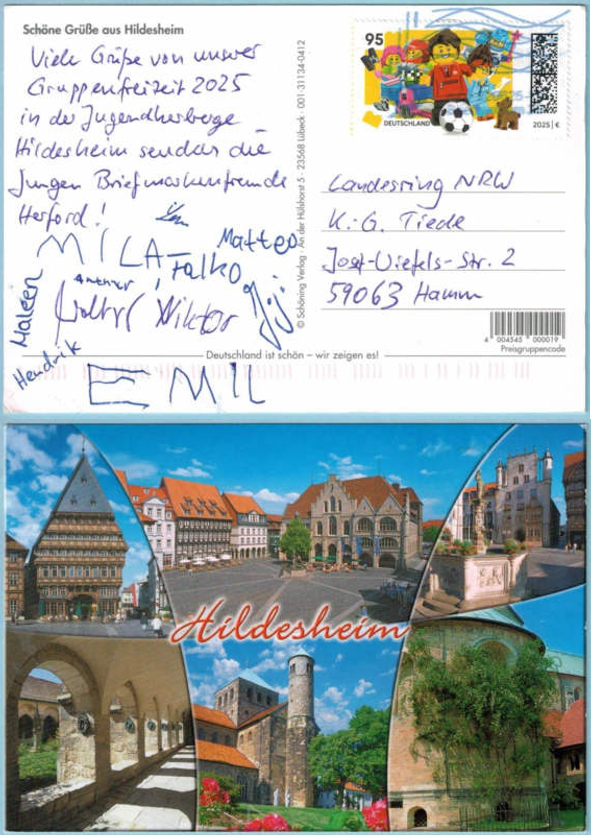 Schöne Grüße aus Hildesheim
Viele Grüße von unserer
Gruppenfreizeit 2025
in der Jugendherberge
Hildesheim senden die
Jungen Briefmarkenfreunde
Herford!
MILA
Matteo
Falko
Maleen
Viktor
Hendrik
EMIL
© Schöning Verlag · An der Hülshorst 5 · 23568 Lübeck · 001-31134-0412
95
DEUTSCHLAND
2025 | €
Landesring NRW
K.-G. Tiede
Josef-Wiefels-Str. 2
59063 Hamm
4 004545 000019
Preisgruppencode
Deutschland ist schön – wir zeigen es!
Hildesheim